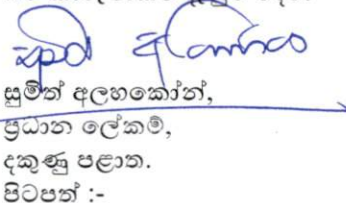 සුමිත් අලහකෝන්,
ප්‍රධාන ලේකම්,
දකුණු පළාත.
පිටපත් :-